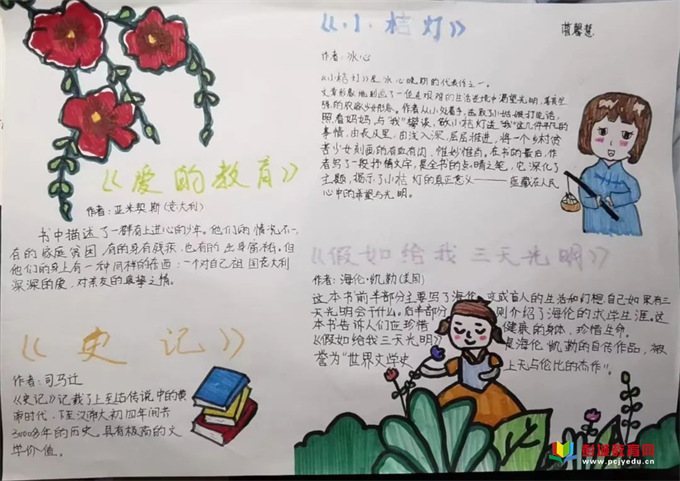 《小桔灯》
蓝馨慧
作者：冰心
《小桔灯》是冰心晚期的代表作之一。
文章形象地刻画了一位在艰难的生活逆境中渴望光明，善良坚
强的农家少女形象。作者从小处着手，
照看妈妈，与"我"攀谈，做小桔灯送"我"这几件平凡的
事情，由表及里，由浅入深，层层推进，将一个乡村贫苦
少女刻画的有血有肉，惟妙惟肖，在书的最后，作
者写了一段抒情文字，是全书的点睛之笔，它深化了
主题，揭示了小桔灯的真正意义——蕴藏在人民
心中的希望与光明。
《爱的教育》
作者：亚米契斯(意大利)
书中描述了一群有上进心的少年。他们的情况不一，
有的家庭贫困，有的身有残疾，也有的出身富裕，但
他们的身上有一种同样的东西：一个对自己祖国意大利
深深的爱，对亲友的真挚之情。
《假如给我三天光明》
作者：海伦·凯勒(美国)
这本书前半部分主要写了海伦变成盲人的生活和幻想自己如果有三
天光明会干什么。后半部分 则介绍了海伦的求学生涯。这
本书告诉人们在珍惜 健康的身体，珍惜生命。
《假如给我三天光明》 是海伦·凯勒的自传作品，被
誉为"世界文学史 上无与伦比的杰作"。
《史记》
作者：司马迁
《史记》记载了上至上古传说中的黄
帝时代，下至汉武大初四年间共
3000多年的历史。具有极高的文
学价值。
教育网
www.pcjyedu.cn